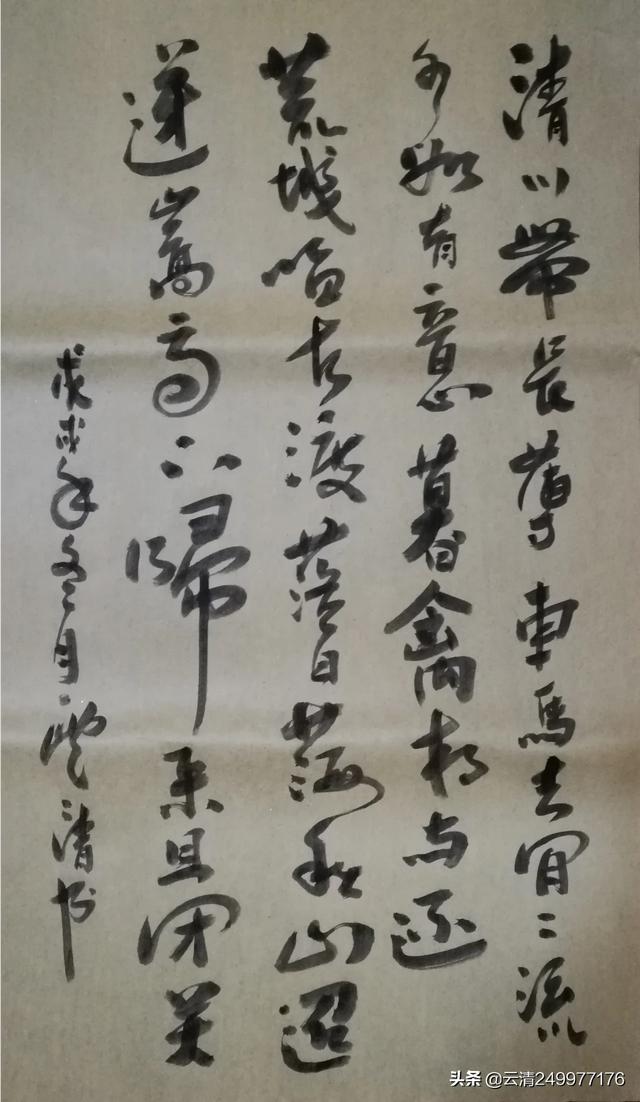 清川帶長薄車馬去间々流
水如有意暮禽相与還
荒城临古渡落日满秋山迢
递嵩高下歸来且闭关
戊戌年冬月雲清书
头条 @云清249977176